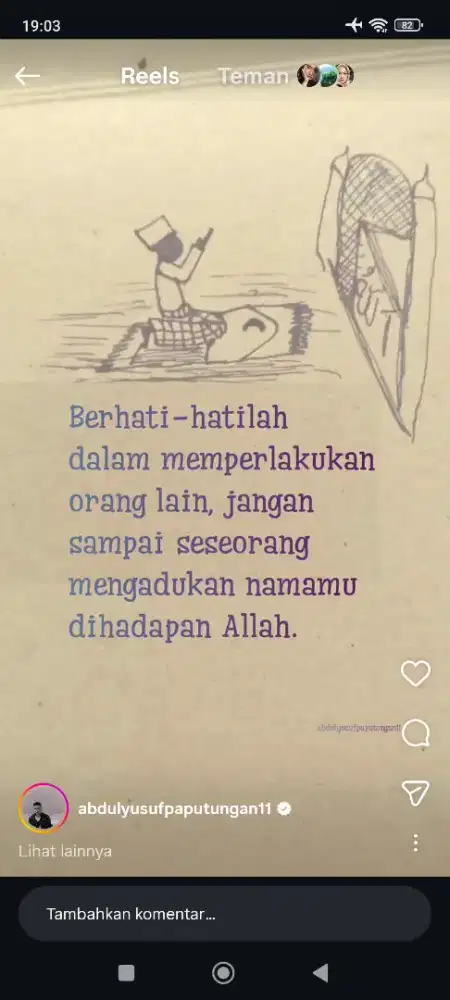 19:03
82
Reels Teman
Berhati-hatilah
dalam memperlakukan
orang lain, jangan
sampai seseorang
mengadukan namamu
dihadapan Allah.
abdulyusufpaputungan11
abdulyusufpaputungan11
Lihat lainnya
Tambahkan komentar...